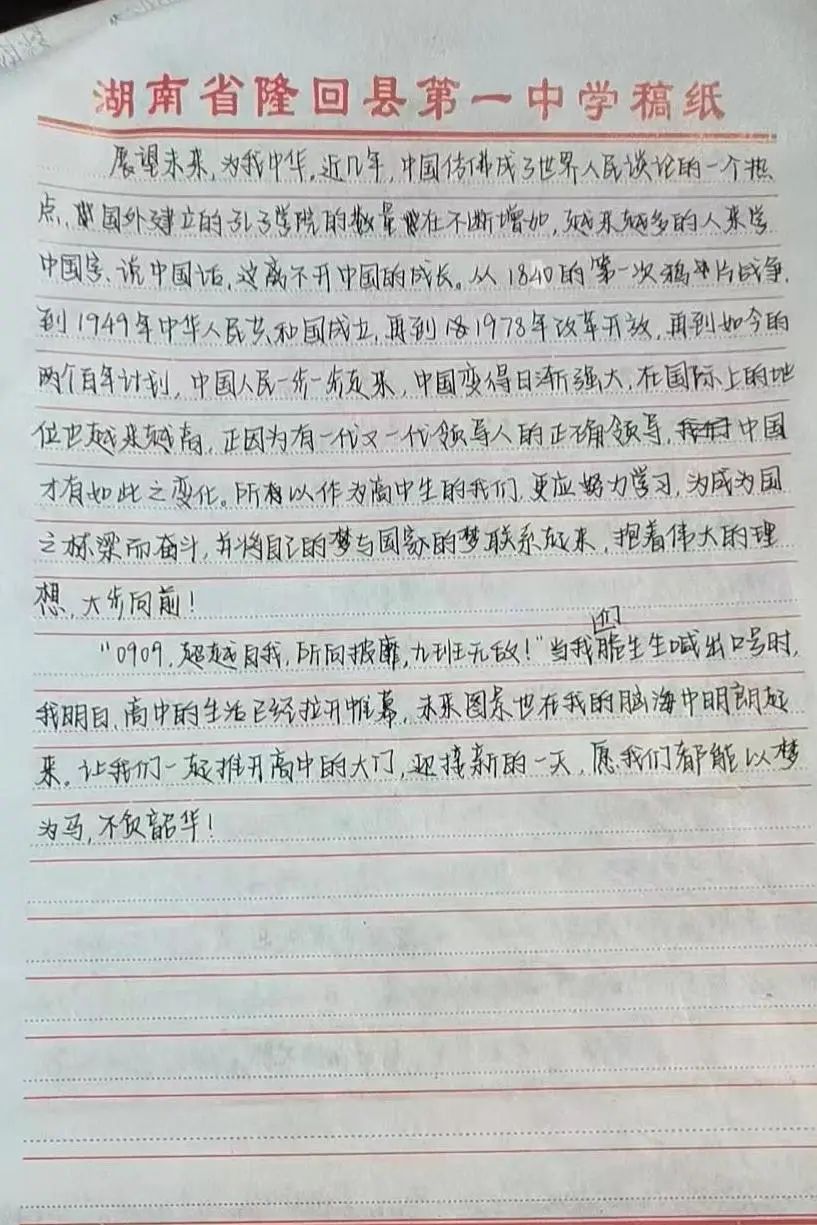 湖南省隆回县第一中学稿纸
展望未来,为我中华。近几年,中国仿佛成了世界人民谈论的一个热
点,国外建立的孔子学院的数量在不断增加,越来越多的人来学
中国字、说中国话,这离不开中国的成长。从1840的第一次鸦片战争,
到1949年中华人民共和国成立,再到1978年改革开放,再到如今的
两个百年计划,中国人民一步一步走来,中国变得日渐强大,在国际上的地
位也越来越高,正因为有一代又一代领导人的正确领导,中国
才有如此之变化。所以作为高中生的我们,更应努力学习,为成为国
之栋梁而奋斗,并将自己的梦与国家的梦联系起来,抱着伟大的理
想,大步向前!
"0909,超越自我,所向披靡,九班无敌!"当我们脆生生喊出口号时,
我明白,高中的生活已经拉开帷幕,未来图景也在我的脑海中明朗起
来。让我们一起推开高中的大门,迎接新的一天,愿我们都能以梦
为马,不负韶华!